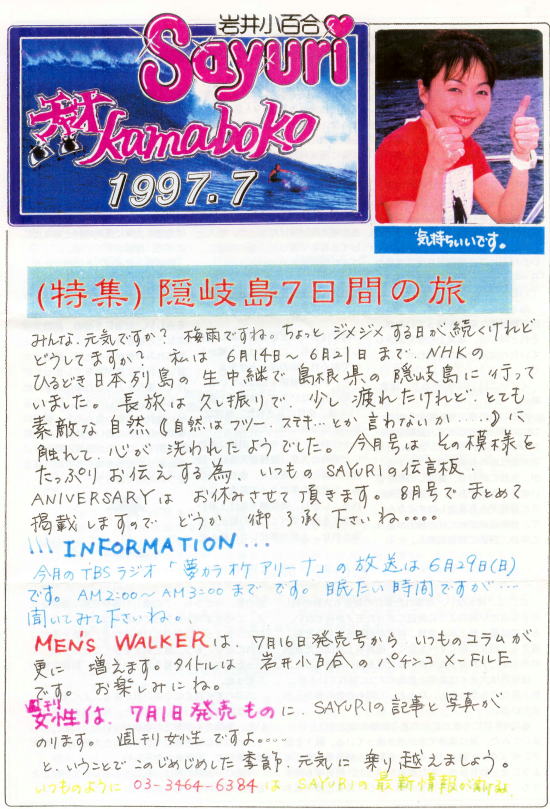 岩井小百合
Sayuri
kamaboko
1997.7
気持ちいいです。
(特集) 隠岐島7日間の旅
みんな、元気ですか? 梅雨ですね。ちょっと ジメジメする日が、続くけれど
どうしてますか? 私は 6月14日〜6月21日まで、NHKの
ひるどき日本列島の 生中継で 島根県の 隠岐島に行って
いました。長旅は 久し振りで、少し 疲れたけれど、とても
素敵な自然(自然はフツー、ステキ…とか言わないか……)に
触れて、心が 洗われたようでした。今月号は その模様を
たっぷり お伝えする為、いつもの SAYURIの伝言板・
ANIVERSARYは お休みさせて頂きます。8月号で まとめて
掲載しますので どうか 御了承下さいね。。。。
!!! INFORMATION...
今月のTBSラジオ「夢カラオケアリーナ」の放送は6月29日(日)
です。AM2:00〜AM3:00まで です。眠たい時間ですが…
聞いてみて下さいね。、
MEN's WALKERは、7月16日発売号から、いつものコラムが
更に 増えます。タイトルは 岩井小百合の パチンコ X-FILE
です。お楽しみにね。
週刊女性は、7月1日発売ものに、SAYURIの記事と写真が
のります。週刊女性ですよ。。。。
と、いうことで このじめじめした季節、元気に 乗り越えましょう。
いつものように 03-3464-6384 は SAYURIの最新情報が